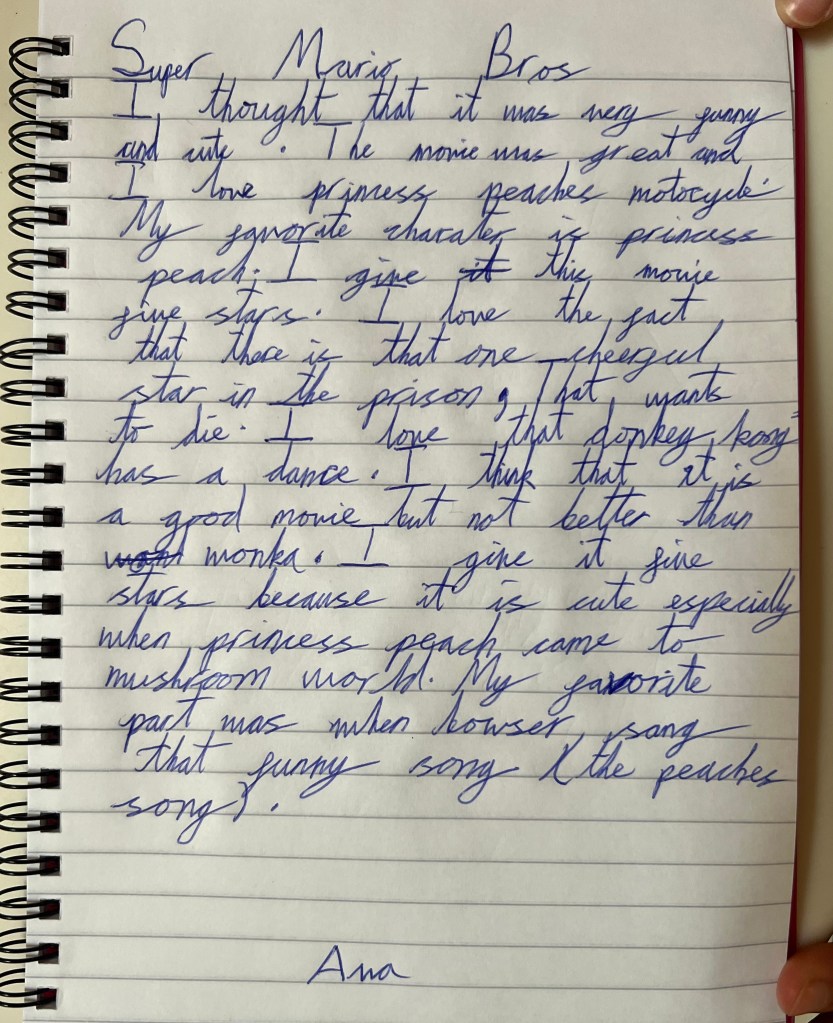 Super Mario Bros
I thought that it was very funny
and cute . The movie was great and
I love princess peaches motocycle.
My favorite charater is princess
peach. I give it this movie
five stars. I love the fact
that there is that one cheerful
star in the prison, That wants
to die. I love that donkey kong
has a dance. I think that it is
a good movie but not better than
wonka. I give it five
stars because it is cute especially
when princess peach came to
mushroom world. My favorite
part was when bowser sang
that funny song (the peaches
song).
Ana